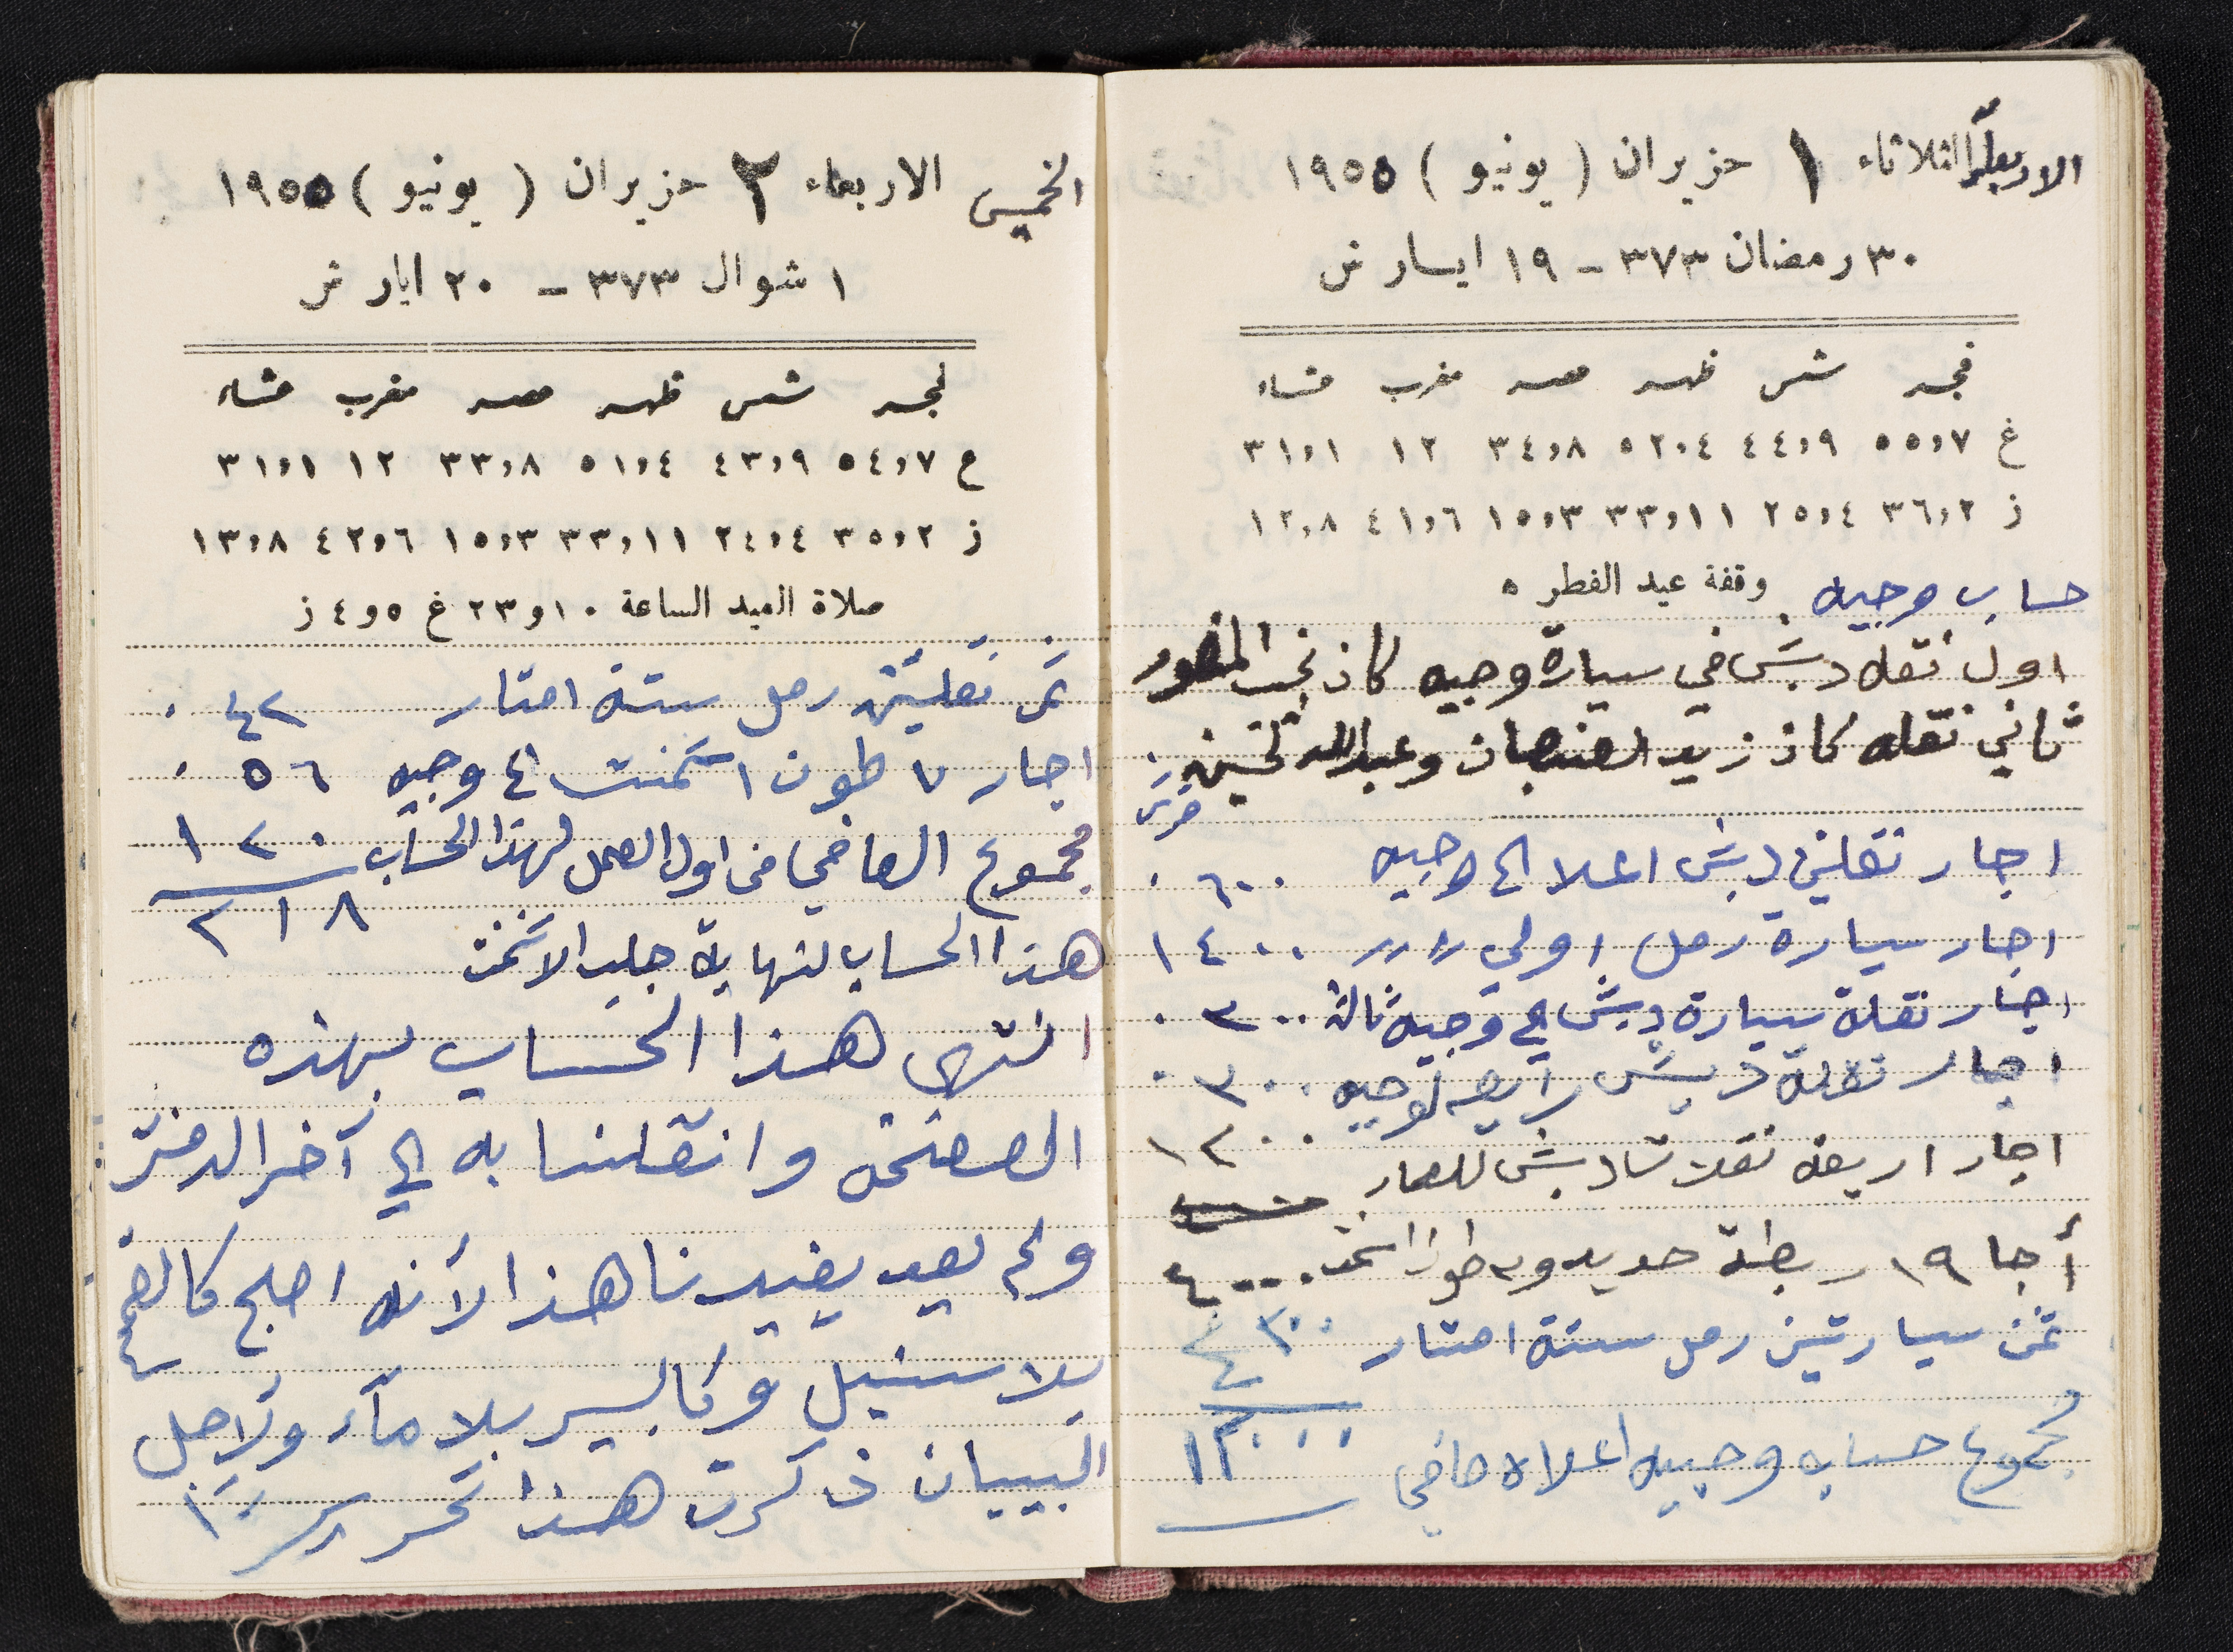 الاربعاء الثلاثاء ١ حزيران ( يونيو ) ١٩٥٥
٣٠ رمضان ٣٧٣ - ١٩ ايار ش
فجر شمس ظهر عصر مغرب عشاء
غ ٥٥,٧ ٤٤,٩ ٥٢,٤ ٣٤,٨ ١٢ ٣١,١
ز ٣٦,٢ ٢٥,٤ ٣٣,١١ ١٥,٣ ٤١,٦ ١٢,٨
وقفة عيد الفطر ٥
حساب وجيه
اول نقله دبش في سيارة وجيه كان نجيب
ثاني نقله كان زيد وعبدالله
اجار نقلتين دبش اعلا الى وجيه ٦٠٠
اجار سيارة رمل اولى " " ١٤٠٠
اجار نقلة سيارة دبش الى وجيه ثالثة ٣٠٠
اجار نقلة دبش رابعه لوجيه ٣٠٠
اجار اربعة نقلات دبش للعمار ١٢٠٠
أجا ١٩ ربطة حديد و٣ طون اسمنت ٤٠٠٠
ثمن سيارتين رمل ستة امتار ٤٢٠٠
مجموع حساب وجيه اعلاه صافي ١٢٠٠٠
الخميس الاربعاء ٢ حزيران ( يونيو ) ١٩٥٥
١ شوال ٣٧٣ - ٢٠ ايار ش
فجر شمس ظهر عصر مغرب عشاء
ع ٥٤,٧ ٤٣,٩ ٥١,٤ ٣٣,٨ ١٢ ٣١,١
ز ٣٥,٢ ٢٤,٤ ٣٣,١١ ١٥,٣ ٤٢,٦ ١٣,٨
صلاة العيد الساعة ١٠و٢٣ غ ٥و٤ ز
ثمن نقلتين رمل ستة امتار ٤٢
اجار ٧ طون اسمنت الى وجيه ٥٦
مجموع الصافي من اول العمل لهذا الحساب ١٢٠
٢١٨
هذا الحساب لنهاية جلب الاسمنت
انتهى هذا الحساب بهذه
الصفحة وانتقلنا به الى آخر الدفتر
ولم يعد يفيدنا هذا لأنه اصبح كالقمح
بلا سنبل وكالبير بلا مآء ولاجل
البييان ذكرت هذا تحرير